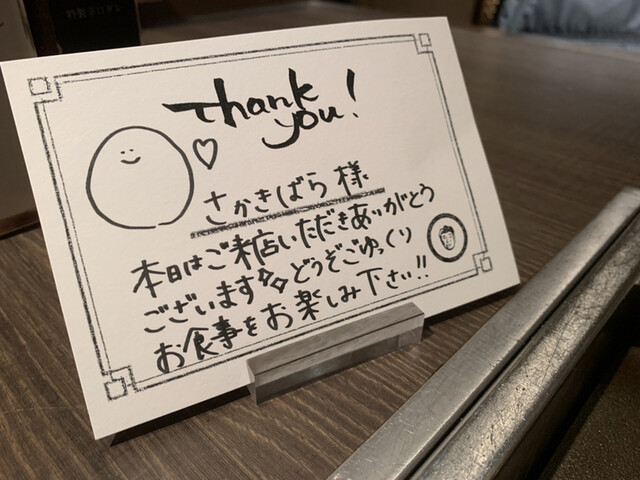 Thank
you!
さかきばら 様
本日はご来店いただきありがとう
ございます どうぞごゆっくり
お食事をお楽しみ下さい!!